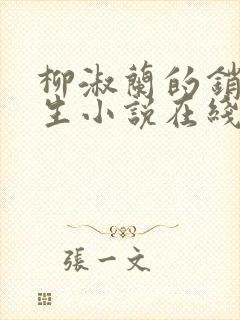 柳淑蘭的銷
生小說在綫
張一文